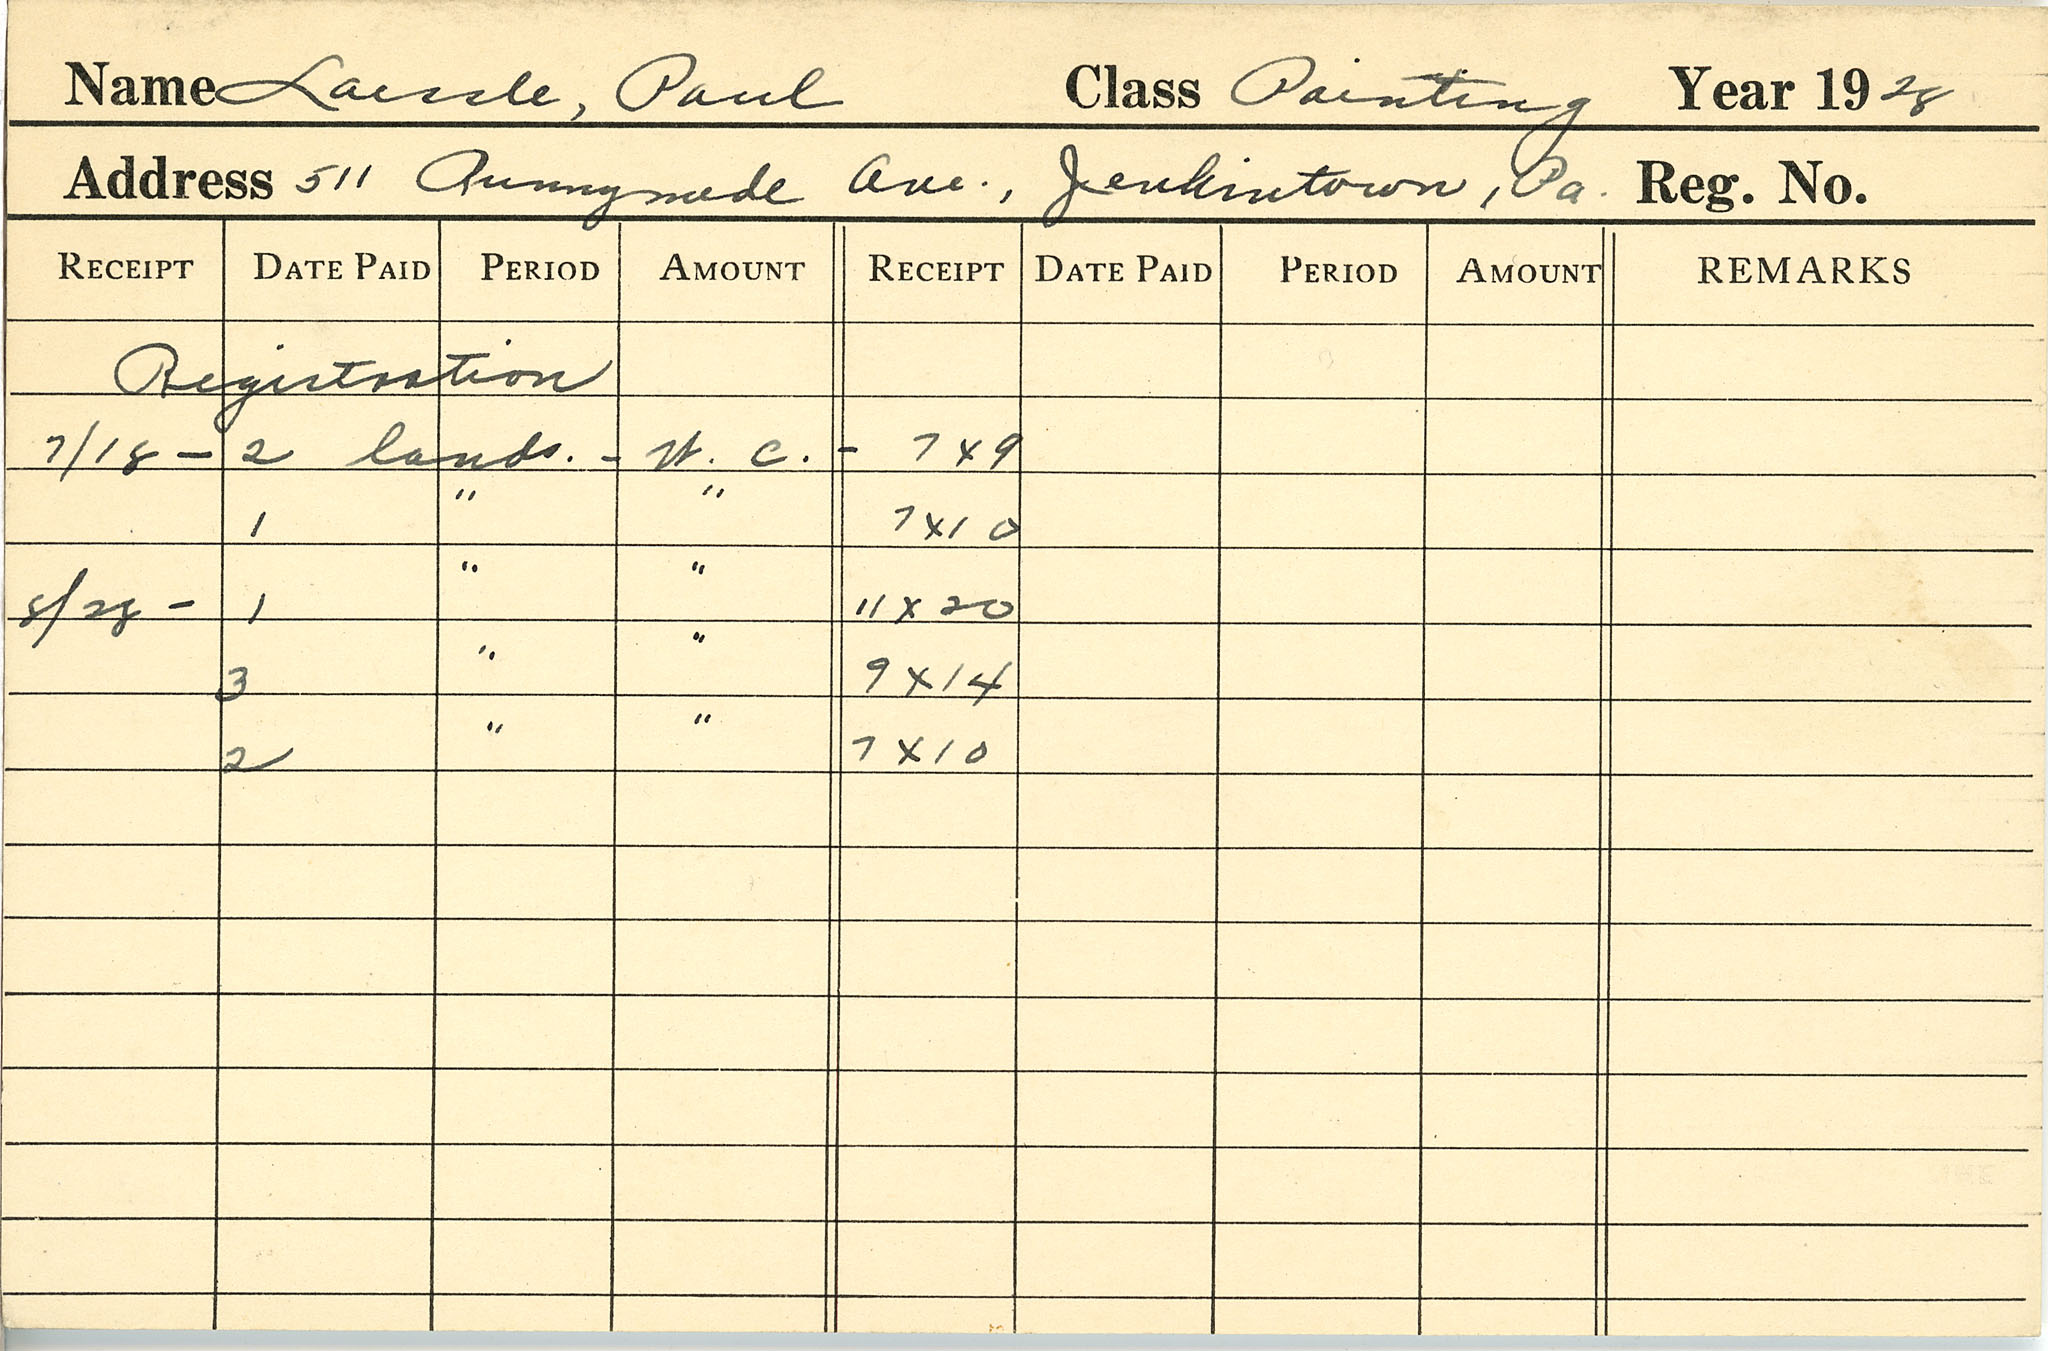 Name Laessle, Paul Class Painting Year 1928
Address 511 Runnymede Ave., Jenkintown, Pa. Reg. No.
RECEIPT DATE PAID PERIOD AMOUNT RECEIPT DATE PAID PERIOD AMOUNT REMARKS
Registration
7/18 - 2 lands. - W. C. - 7x9
1 " " 7x10
8/28 - 1 " " 11x20
3 " " 9x14
2 " " 7x10